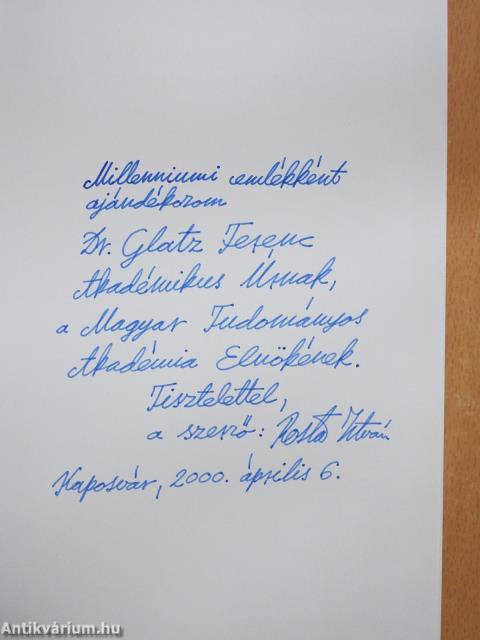 Millenniumi emlékként
ajándékozom
Dr. Glatz Ferenc
Akadémikus Úrnak,
a Magyar Tudományos
Akadémia Elnökének.
Tisztelettel,
a szerző: Rosta István
Kaposvár, 2000. április 6.
Antikvárium.hu